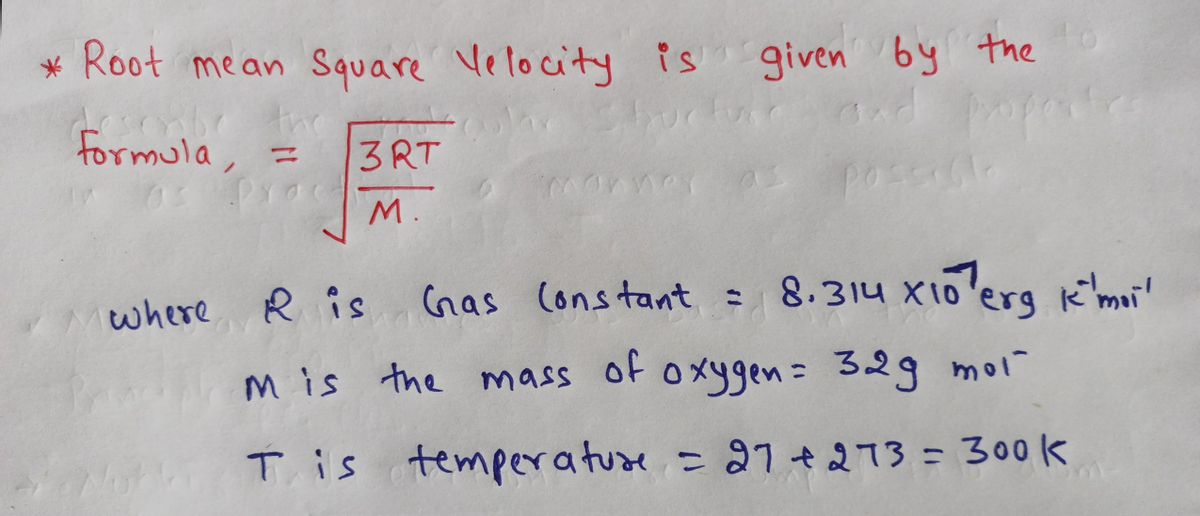 * Root mean Square Velocity is given by the
formula, = √3RT
M.
where R is Gas Constant = 8.314 X10⁷erg K⁻¹mol⁻¹
M is the mass of oxygen = 32g mol⁻
T is temperature = 27 + 273 = 300K